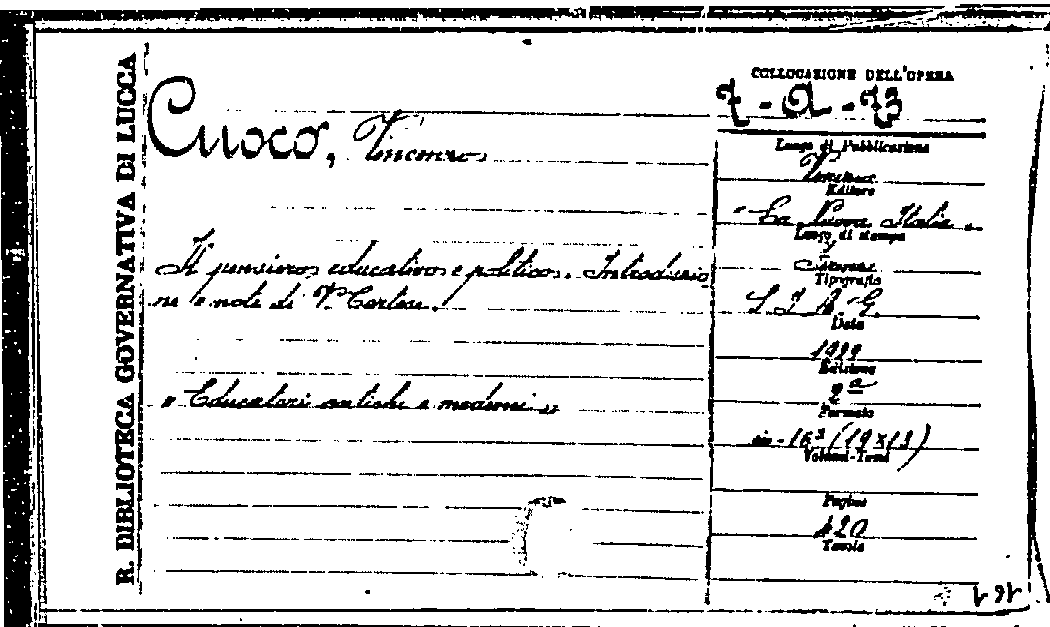 R. BIBLIOTECA GOVERNATIVA DI LUCCA
Cuoco, Vincenzo
Il pensiero educativo e politico. Introduzio
ne e note di V. Cortese.
"Educatori antichi e moderni"
COLLOCAZIONE DELL'OPERA
7 - Q - 73
Luogo di Pubblicazione
Venezia
Editore
"La Nuova Italia"
Luogo di stampa
Tipografia
Data
Edizione
2ª
Formato
in-16° (19x13)
Volumi-Tomi
Pagine
420
Tavole